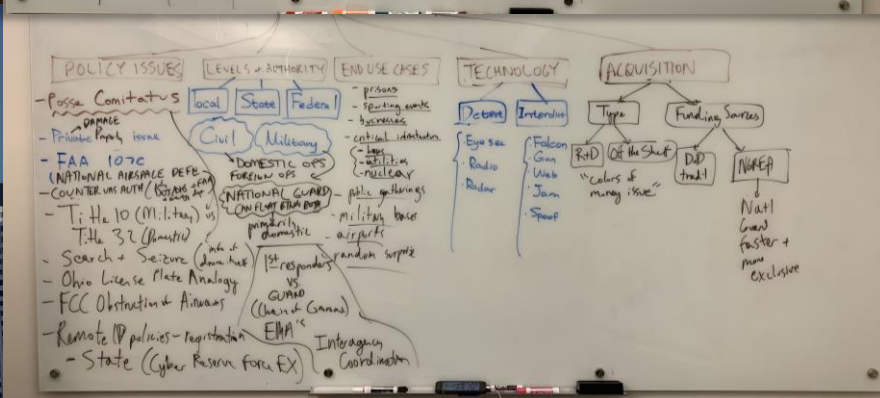 POLICY ISSUES
- Posse Comitatus
DAMAGE
- Private Property issue
- FAA 107c
(NATIONAL AIRSPACE DEFE
- COUNTER UAS AUTH
- Title 10 (Military) vs
Title 32 (Domestic)
- Search + Seizure
- Ohio License Plate Analogy
- FCC Obstruction of Airwaves
- Remote ID policies - registration
- State (Cyber Reserve Force EX)
LEVELS of AUTHORITY
local State Federal
Civil Military
DOMESTIC OPS
FOREIGN OPS
NATIONAL GUARD
primarily
domestic
1st responders
VS
GUARD
(Chain of Command)
EMA's
Interagency
Coordination
END USE CASES
- prisons
- sporting events
- businesses
- critical infrastructure
- utilities
- nuclear
- public gatherings
- military bases
- airports
- random surprise
TECHNOLOGY
Detect Interdict
Eye see
Radio
Radar
Falcon
Gun
Web
Jam
Spoof
ACQUISITION
Type Funding Sources
R+D Off the Shelf
"colors of
money issue"
DoD
trad'l
NGREA
Nat'l
Guard
faster +
more
exclusive